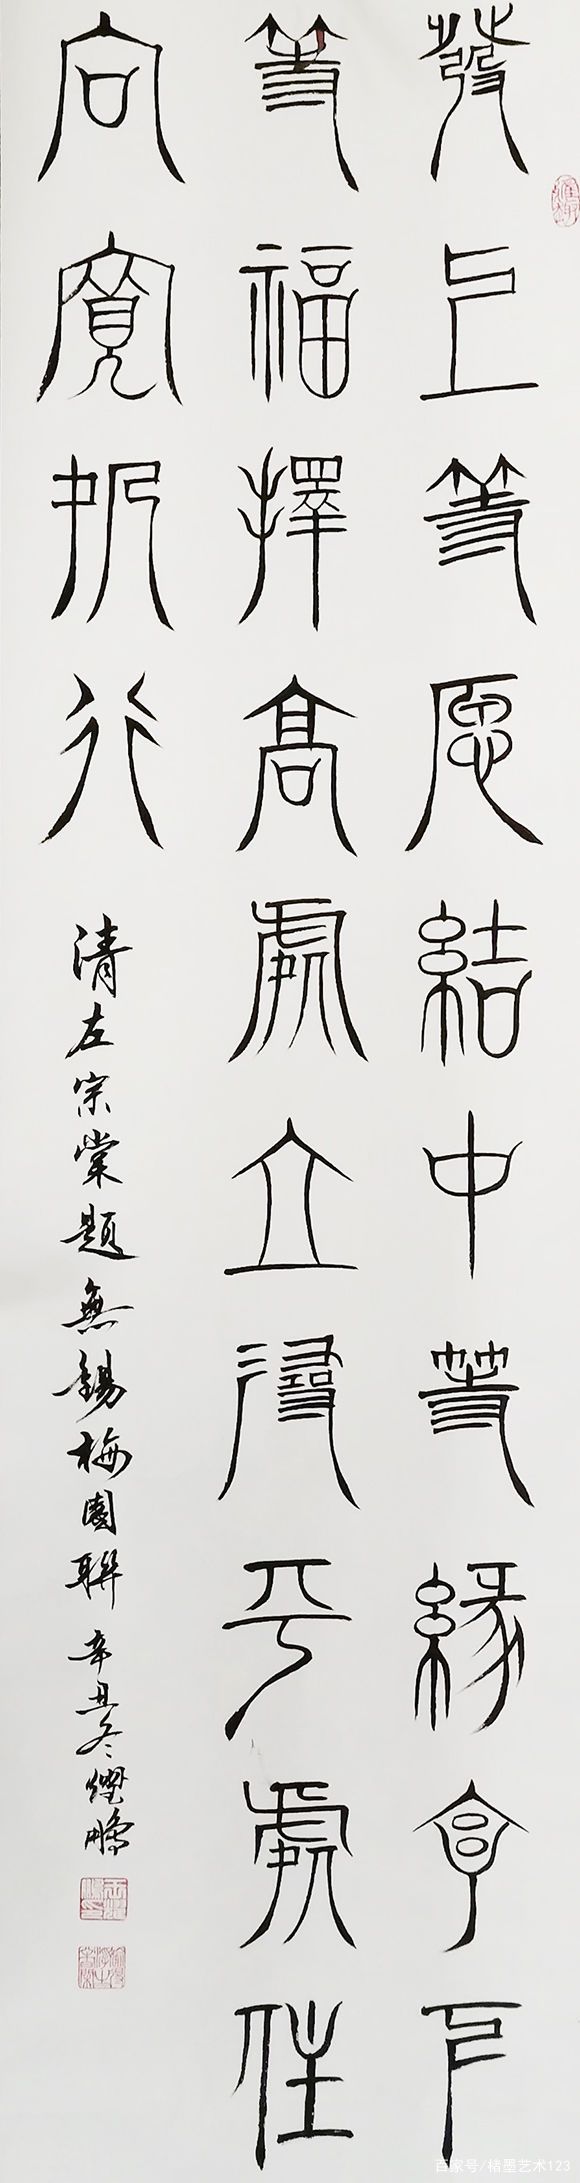 發上等愿結中等緣享下
等福擇高處立尋平處住
向寬處行
清左宗棠題無錫梅園聯 辛丑冬
百家号/楮墨艺术123